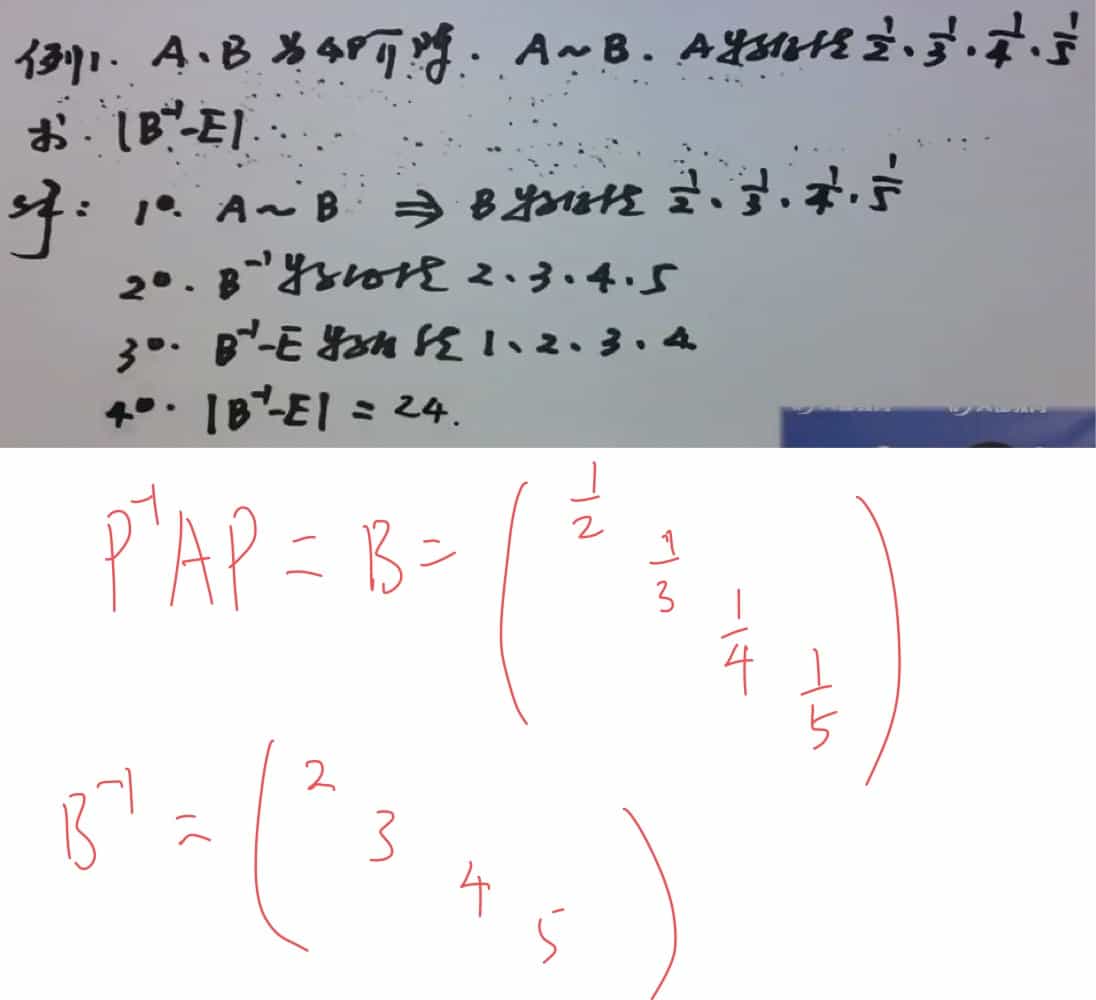 例1. A、B为4阶可逆阵. A~B. A特征值 1/2、1/3、1/4、1/5
求. |B⁻¹-E|.
解: 1°. A~B ⇒ B特征值 1/2、1/3、1/4、1/5
2°. B⁻¹特征值 2、3、4、5
3°. B⁻¹-E 特征值 1、2、3、4
4°. |B⁻¹-E| = 24.
P⁻¹AP = B = ( 1/2 1/3 1/4 1/5 )
B⁻¹ = ( 2 3 4 5 )